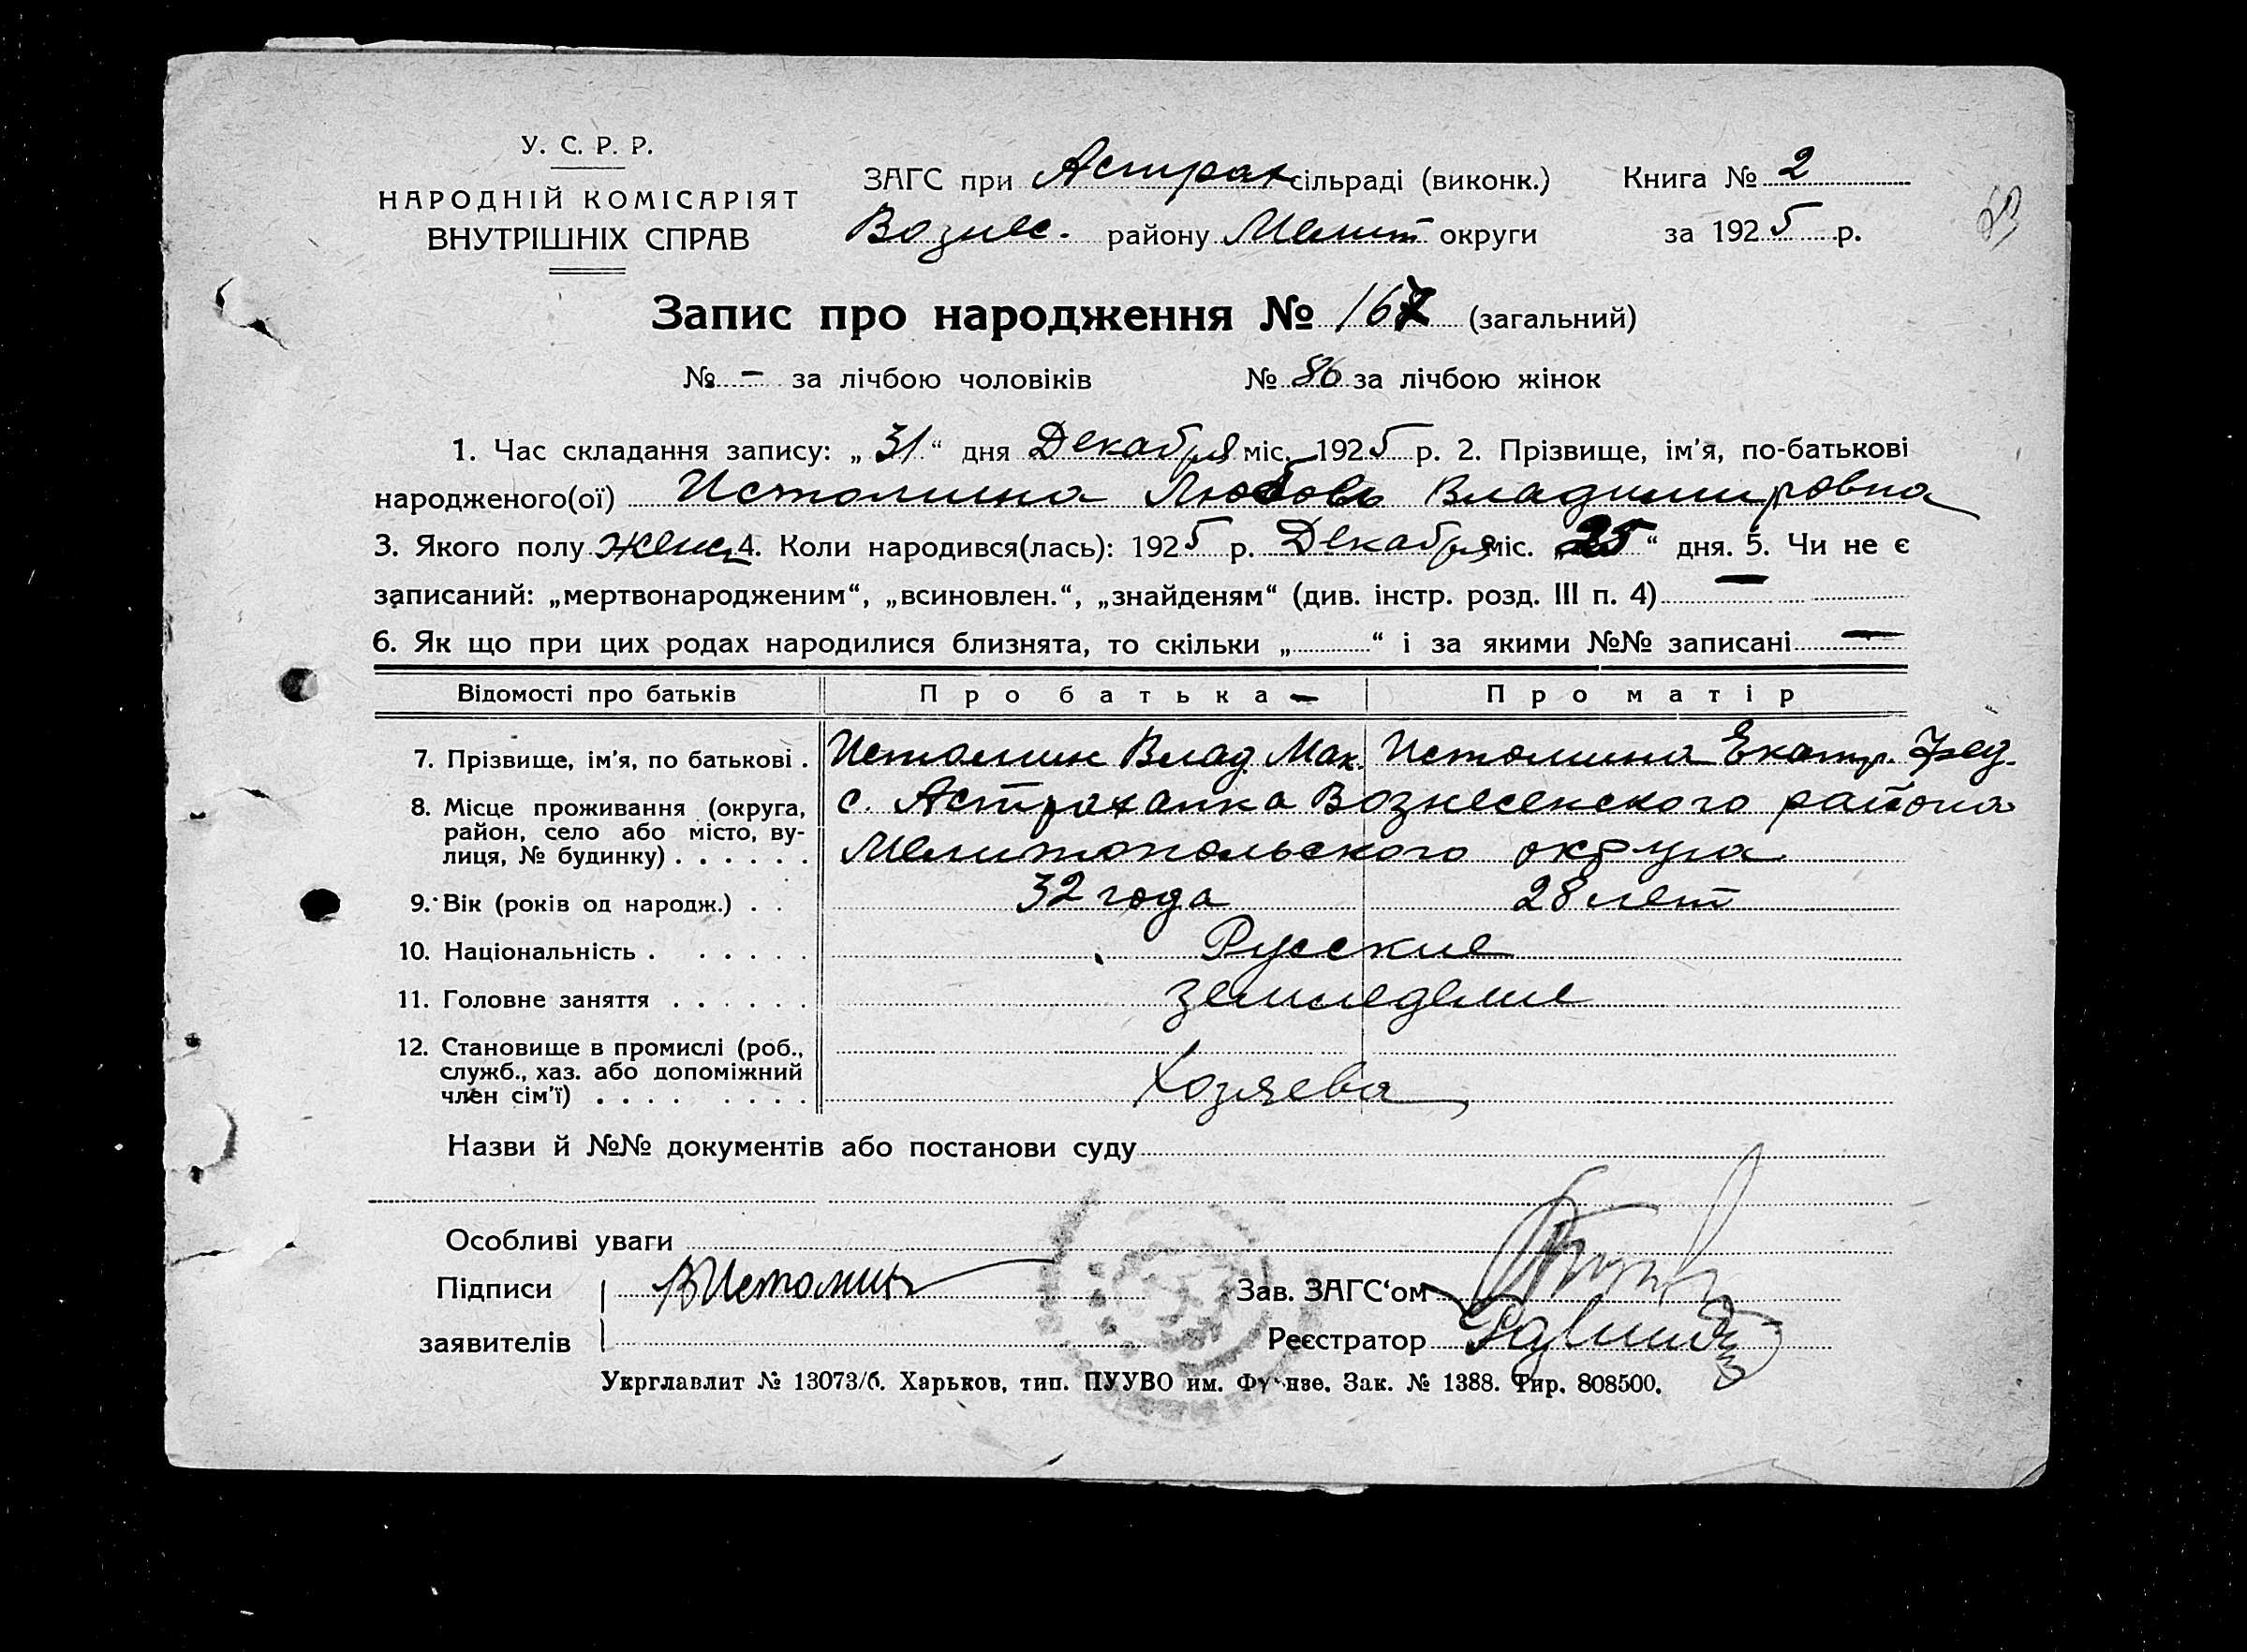 У. С. Р. Р.
НАРОДНІЙ КОМІСАРІЯТ
ВНУТРІШНІХ СПРАВ
ЗАГС при Астрах сільраді (виконк.) Книга № 2
Вознес. району Мелит округи за 1925 р.
Запис про народження № 167 (загальний)
№ - за лічбою чоловіків № 86 за лічбою жінок
1. Час складання запису: „31“ дня Декабря міс. 1925 р. 2. Прізвище, ім'я, по-батькові
народженого(ої) Истомина Любовь Владимировна
3. Якого полу женц 4. Коли народився(лась): 1925 р. Декабря міс. „25“ дня. 5. Чи не є
записаний: „мертвонародженим“, „всиновлен.“, „знайденям“ (див. інстр. розд. III п. 4) —
6. Як що при цих родах народилися близнята, то скільки „ “ і за якими №№ записані —
Відомості про батьків Про батька — Про матір
7. Прізвище, ім'я, по батькові . Истомин Влад. Мак. Истомина Екатр. Фед.
8. Місце проживання (округа, с. Астраханка Вознесенского района
район, село або місто, ву-
лиця, № будинку) . . . . . . Мелитопольского округа.
9. Вік (років од народж.) . . 32 года 28 лет
10. Національність . . . . . . Русские
11. Головне заняття . . . . . . земледелие
12. Становище в промислі (роб.,
служб., хаз. або допоміжний
член сім'ї) . . . . . . . . Хозяева
Назви й №№ документів або постанови суду
Особливі уваги
Підписи В Истомин Зав. ЗАГС'ом
заявителів Реєстратор
Укрглавлит № 13073/б. Харьков, тип. ПУУВО им. Фрунзе. Зак. № 1388. Тир. 808500.